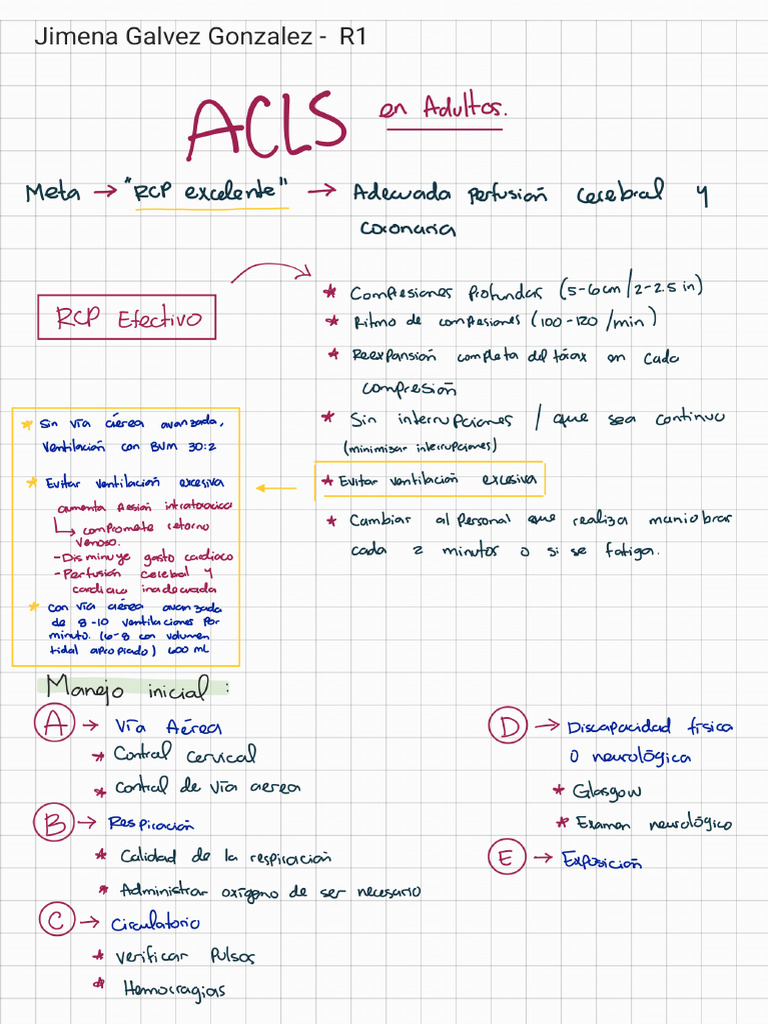 Jimena Galvez Gonzalez - R1
ACLS en Adultos.
Meta → "RCP excelente" → Adecuada perfusión cerebral y
coronaria
RCP Efectivo
* Compresiones profundas (5-6cm/2-2.5 in)
* Ritmo de compresiones (100-120/min)
* Reexpansión completa del tórax en cada
compresión
* Sin interrupciones / que sea continuo
(minimizar interrupciones)
* Evitar ventilación excesiva
* Cambiar al personal que realiza maniobras
cada 2 minutos o si se fatiga.
* Sin vía aérea avanzada,
ventilación con BVM 30:2
* Evitar ventilación excesiva
aumenta presión intratoracica
↳ compromete retorno
venoso.
- Disminuye gasto cardiaco
- Perfusión cerebral y
cardiaca inadecuada
* con vía aérea avanzada
de 8-10 ventilaciones por
minuto. (6-8 con volumen
tidal apropiado) 600 mL
Manejo inicial:
A → Vía Aérea
* Control cervical
* Control de vía aerea
B → Respiración
* Calidad de la respiración
* Administrar oxígeno de ser necesario
C → Circulatorio
* Verificar pulsos
* Hemorragias
D → Discapacidad física
o neurológica
* Glasgow
* Examen neurológico
E → Exposición